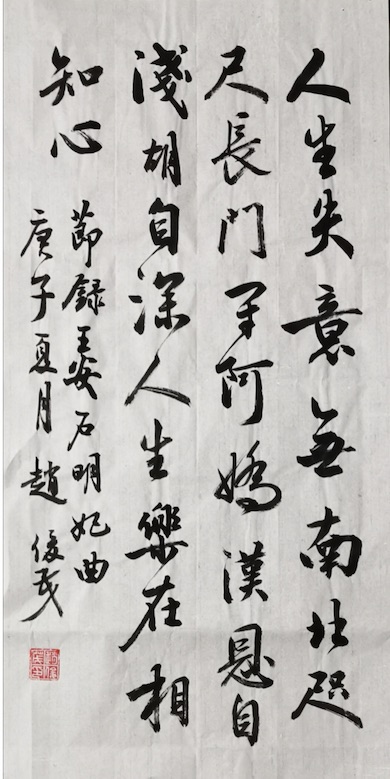 人生失意無南北咫
尺長門閉阿嬌漢恩自
淺胡自深人生樂在相
知心
節錄王安石明妃曲
庚子夏月趙俊